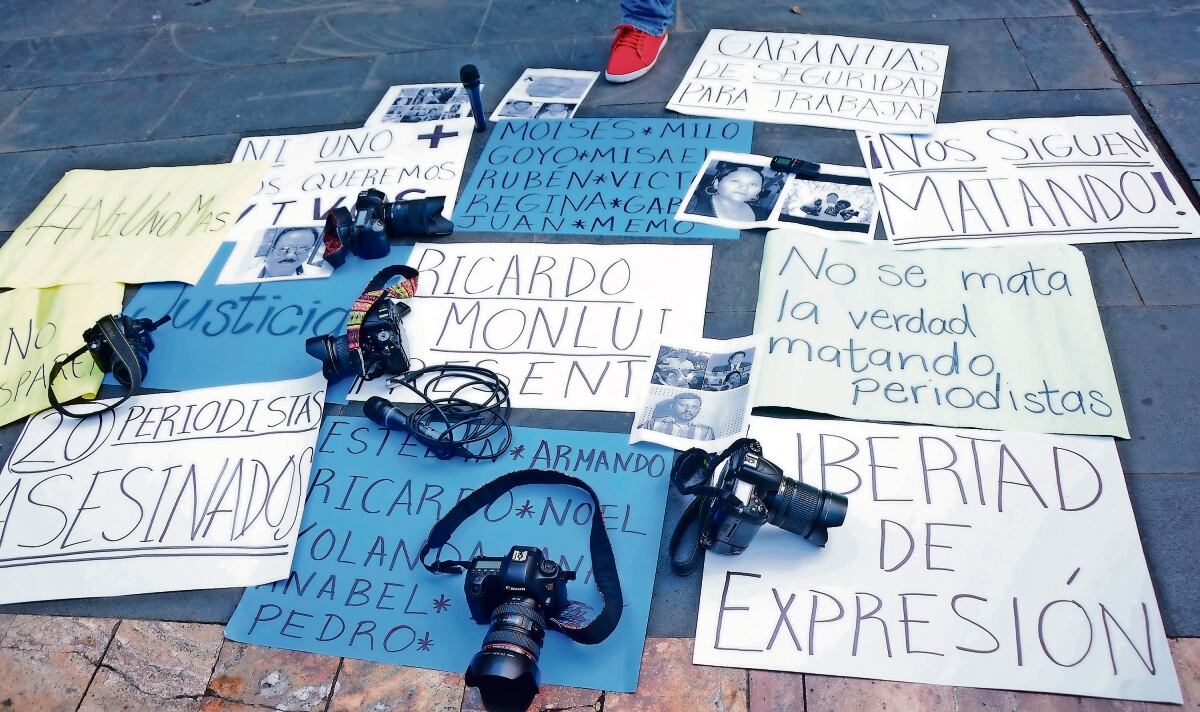 GARANTIAS
DE SEGURIDAD
PARA TRABAJAR
NI UNO +
QUEREMOS
MOISÉS * MILO
GOYO * MISAEL
RUBÉN * VICT
REGINA * GAB
JUAN * MEMO
¡NOS SIGUEN
MATANDO!
#NIUNOMAS
Justicia
RICARDO
MONLUI
ENT
No se mata
la verdad
matando
periodistas
NO
20 PERIODISTAS
ASESINADOS
ESTEBAN * ARMANDO
RICARDO * NOEL
YOLANDA
ANABEL *
PEDRO *
LIBERTAD
DE
EXPRESIÓN
Canon